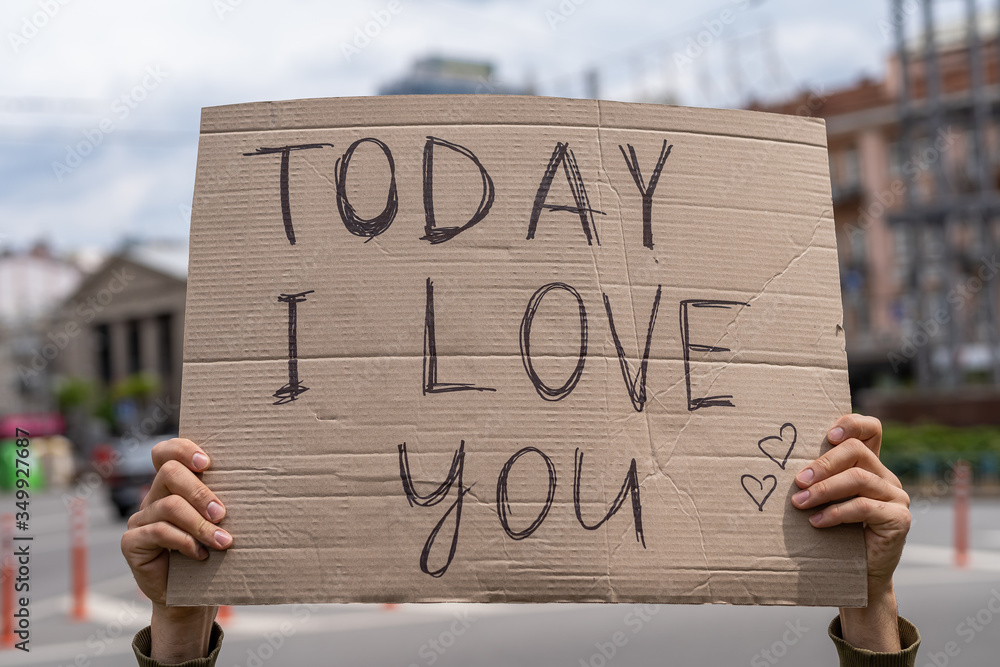 TODAY
I LOVE
you
Adobe Stock | #349927687